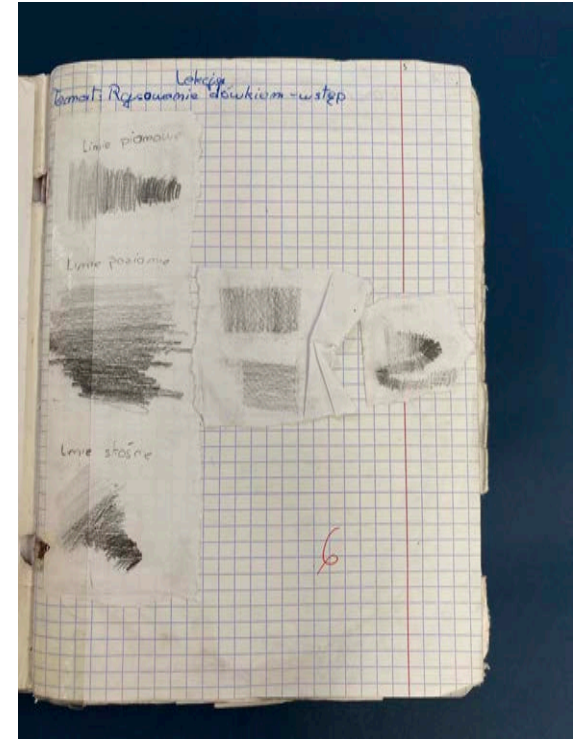 Lekcja
Temat: Rysowanie ołówkiem - wstęp
Linie pionowe
Linie poziome
Linie skośne
6